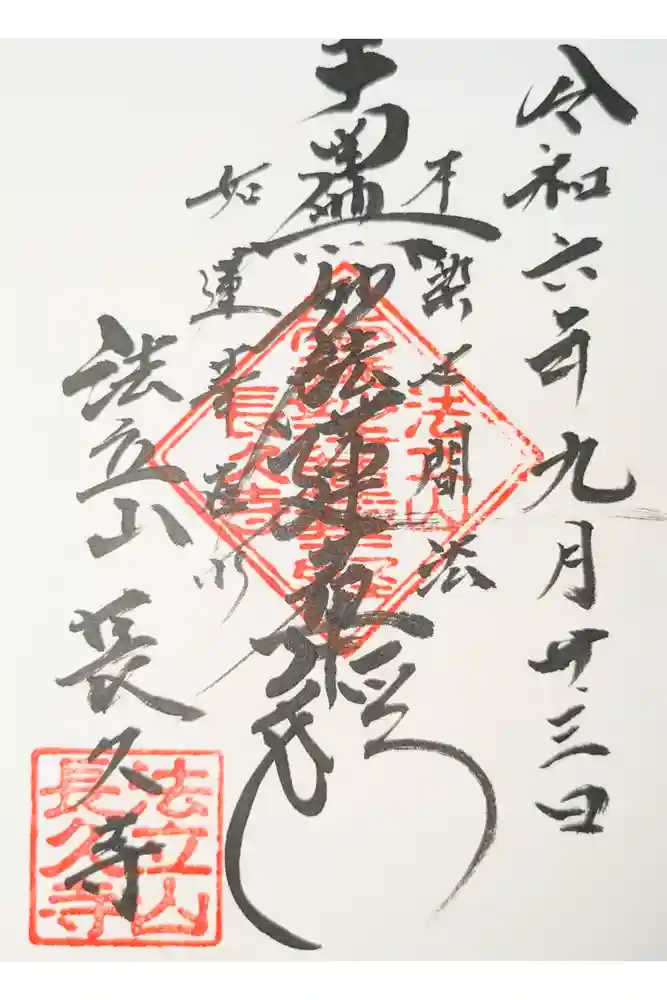 令和六年九月廿三日
不染世間法
南無妙法蓮華経
如蓮華在水
法立山 長久寺
法立山
長久寺
法立山
長久寺